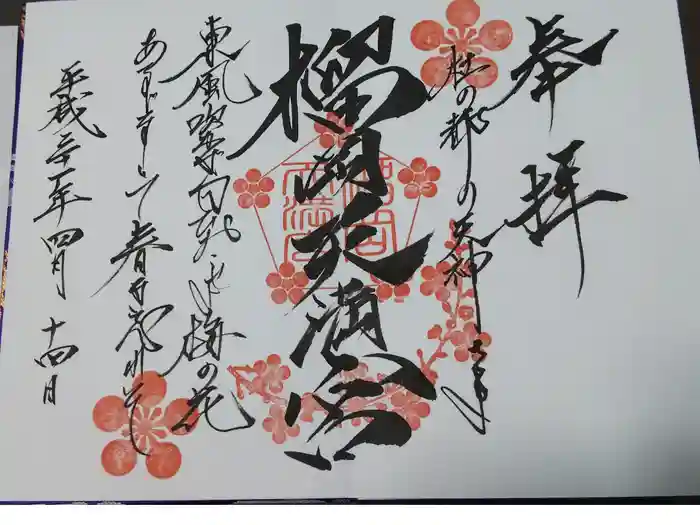 奉拝
杜の都の天神さま
榴岡天満宮
東風吹かば匂ひおこせよ梅の花
あるじなしとて春な忘れそ
平成三十一年四月十四日